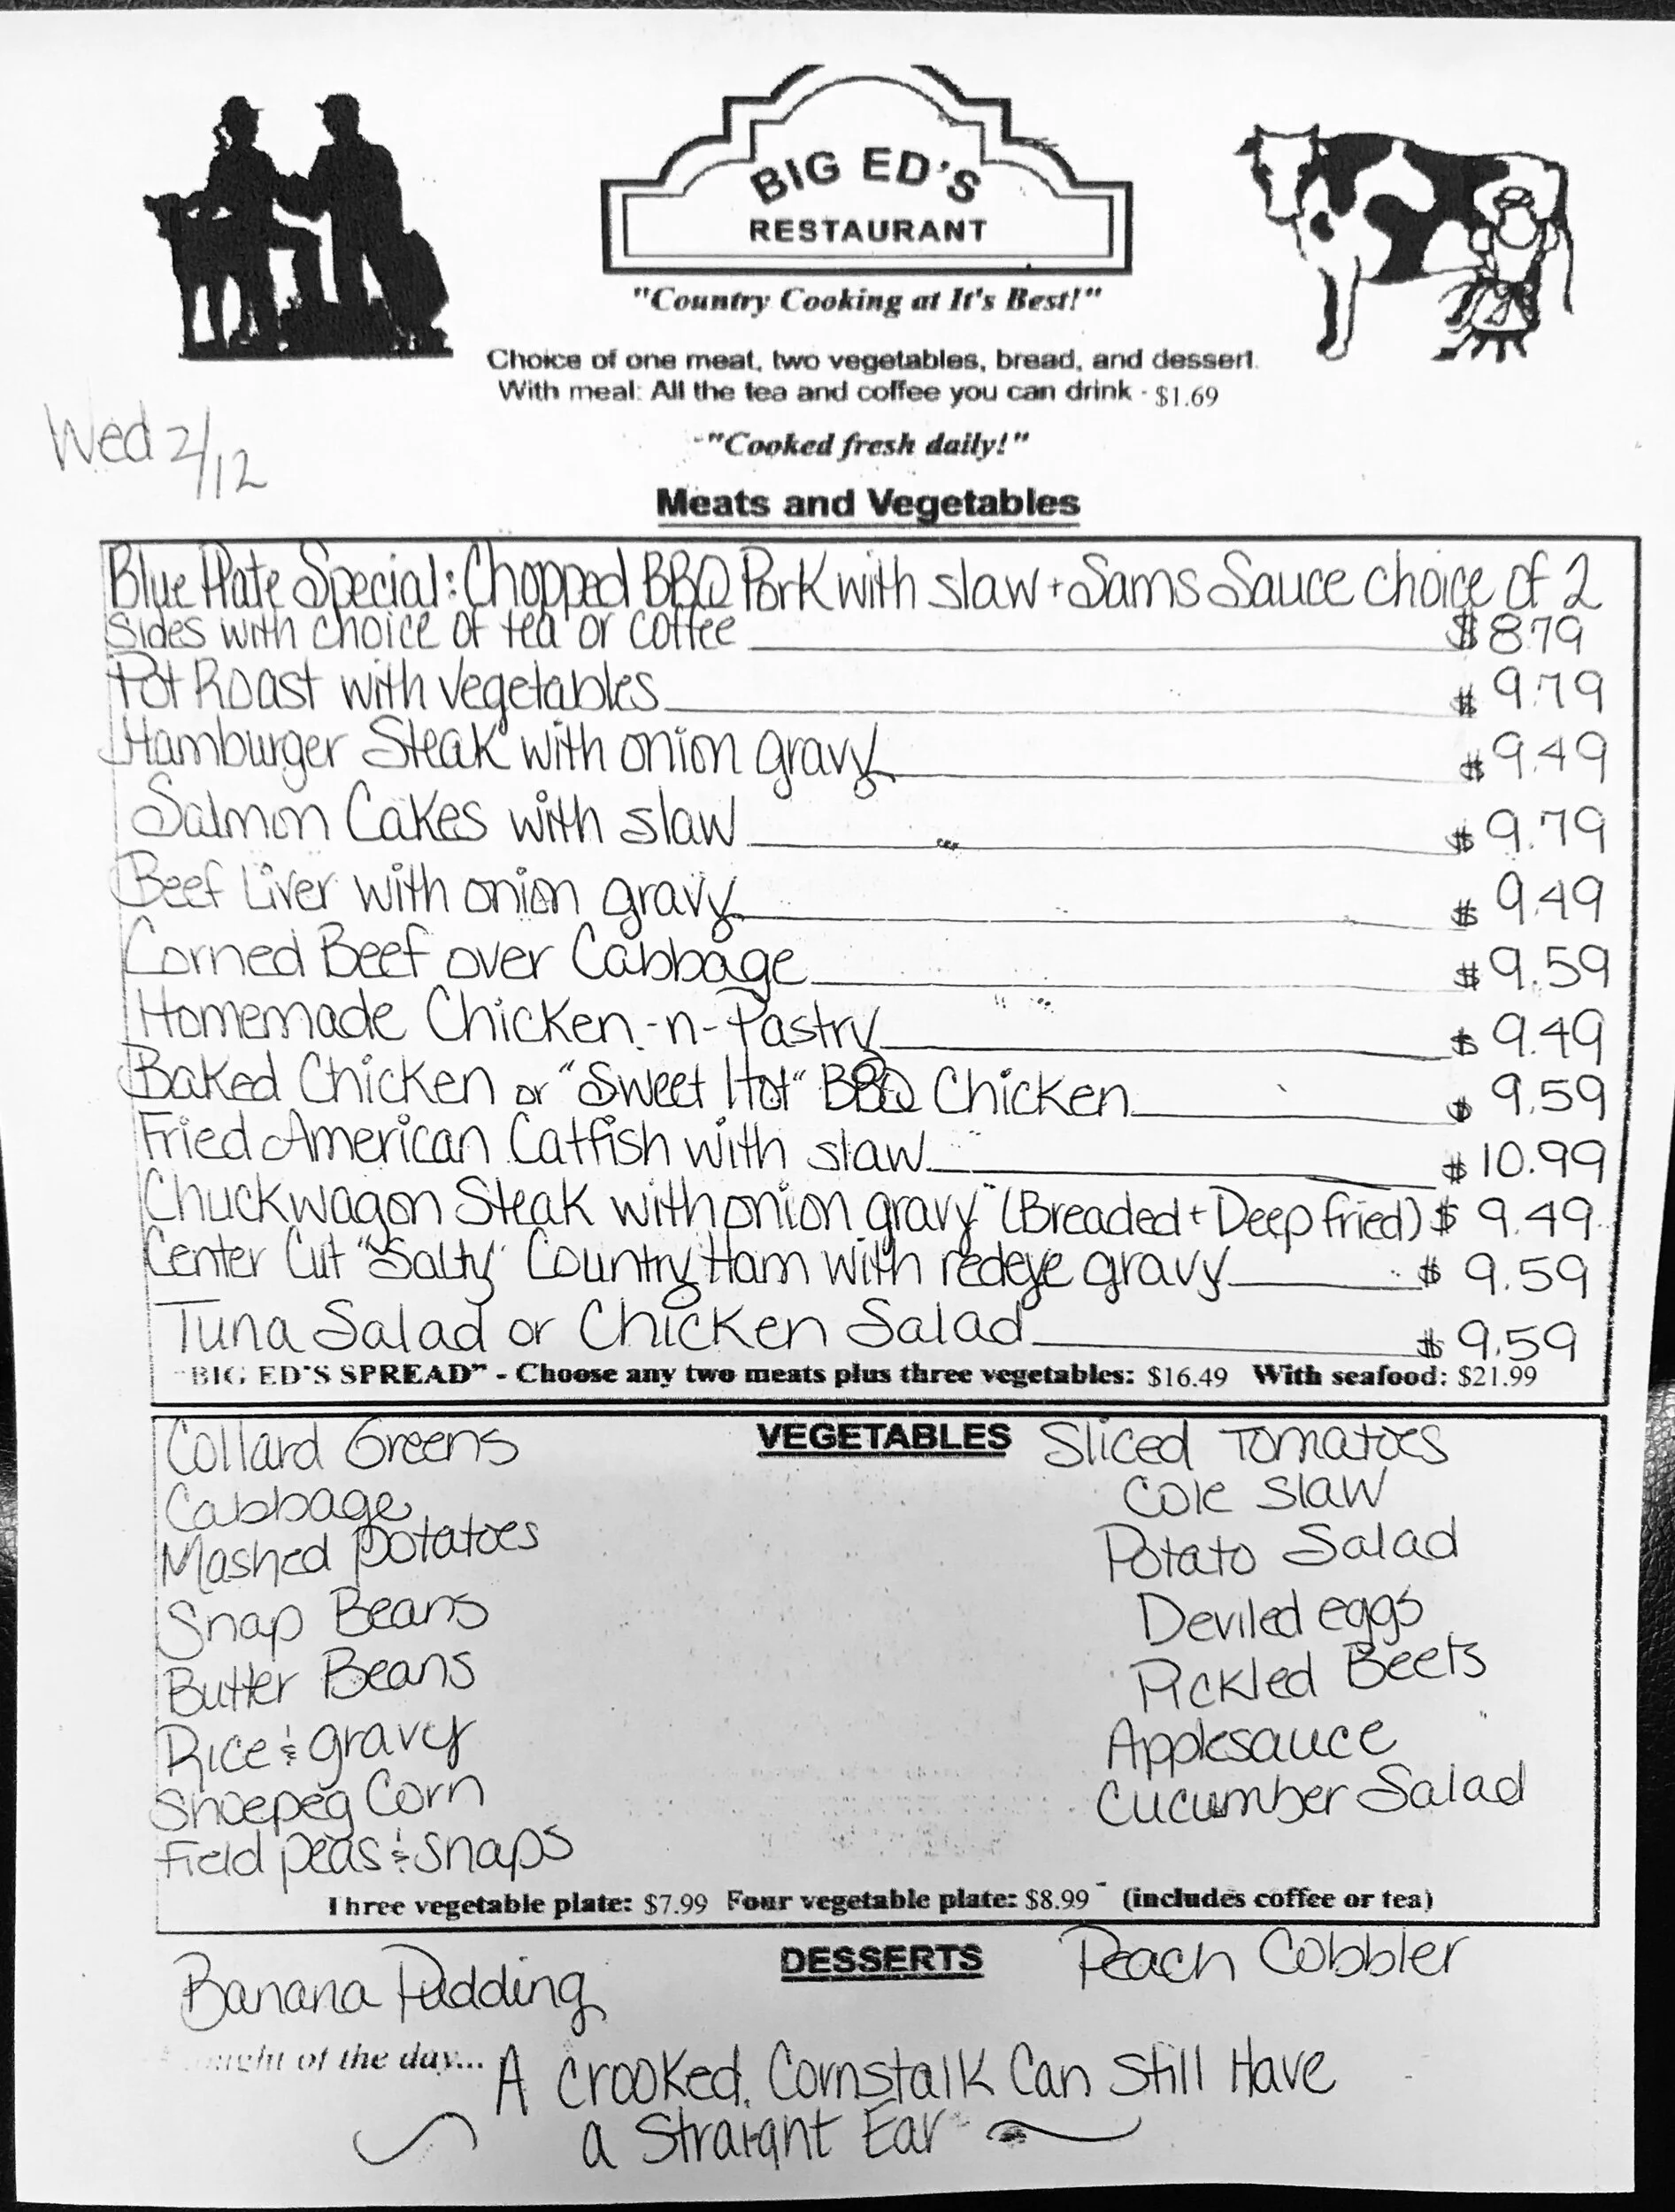 BIG ED'S
RESTAURANT
"Country Cooking at It's Best!"
Choice of one meat, two vegetables, bread, and dessert.
With meal: All the tea and coffee you can drink - $1.69
Wed 2/12
"Cooked fresh daily!"
Meats and Vegetables
Blue Plate Special: Chopped BBQ Pork with slaw + Sams Sauce choice of 2
sides with choice of tea or coffee $8.79
Pot Roast with vegetables $9.79
Hamburger Steak with onion gravy $9.49
Salmon Cakes with slaw $9.79
Beef Liver with onion gravy $9.49
Corned Beef over Cabbage $9.59
Homemade Chicken-n-Pastry $9.49
Baked Chicken or "Sweet Hot" BBQ Chicken $9.59
Fried American Catfish with slaw $10.99
Chuckwagon Steak with onion gravy (Breaded + Deep fried) $9.49
Center Cut "Salty" Country Ham with redeye gravy $9.59
Tuna Salad or Chicken Salad $9.59
"BIG ED'S SPREAD" - Choose any two meats plus three vegetables: $16.49 With seafood: $21.99
VEGETABLES
Collard Greens
Cabbage
Mashed potatoes
Snap Beans
Butter Beans
Rice & gravy
Shoepeg Corn
Field peas & snaps
Sliced Tomatoes
Cole Slaw
Potato Salad
Deviled eggs
Pickled Beets
Applesauce
Cucumber Salad
Three vegetable plate: $7.99 Four vegetable plate: $8.99 (includes coffee or tea)
DESSERTS
Banana Pudding
Peach Cobbler
of the day... A Crooked Cornstalk Can Still Have
a Straight Ear